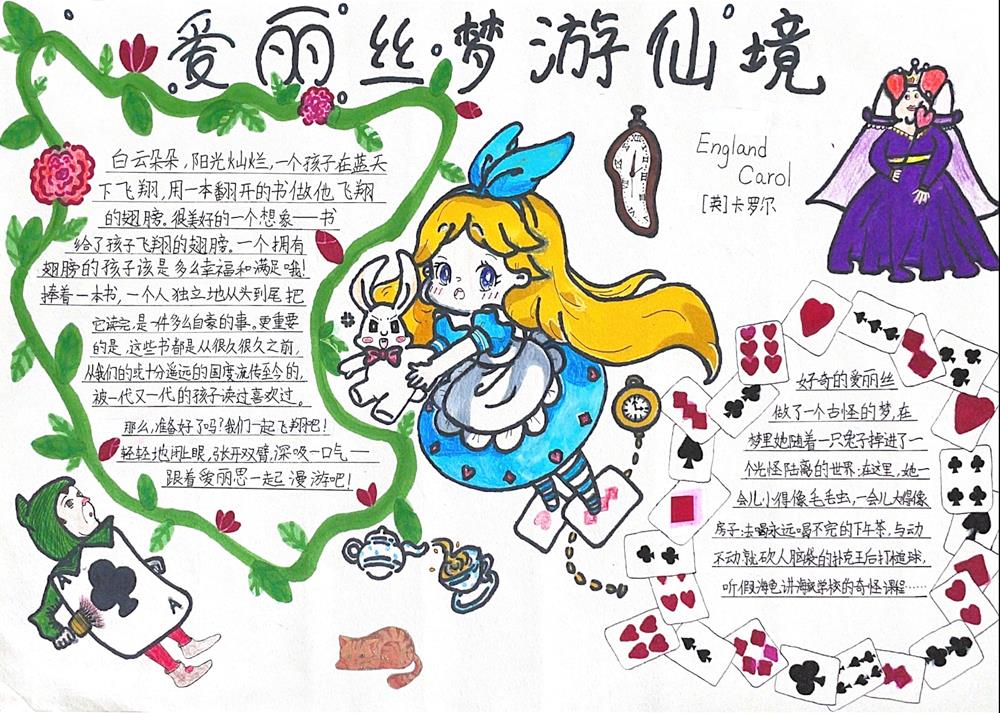 爱丽丝梦游仙境
England
Carol
[英]卡罗尔
白云朵朵,阳光灿烂,一个孩子在蓝天
下飞翔,用一本翻开的书做他飞翔
的翅膀。很美好的一个想象——书
给了孩子飞翔的翅膀。一个拥有
翅膀的孩子该是多么幸福和满足哦!
捧着一本书,一个人独立地从头到尾把
它读完,是一件多么自豪的事。更重要
的是,这些书都是从很久很久之前,
从我们的或十分遥远的国度流传至今的,
被一代又一代的孩子读过喜欢过。
那么,准备好了吗?我们一起飞翔吧!
轻轻地闭上眼,张开双臂,深吸一口气—
跟着爱丽思一起漫游吧!
好奇的爱丽丝
做了一个古怪的梦,在
梦里她随着一只兔子掉进了一
个光怪陆离的世界:在这里,她一
会儿小得像毛毛虫,一会儿大得像
房子;去喝永远喝不完的下午茶,与动
不动就砍人脑袋的扑克王后打槌球,
听假海龟讲海底学校的奇怪课程……
A
A